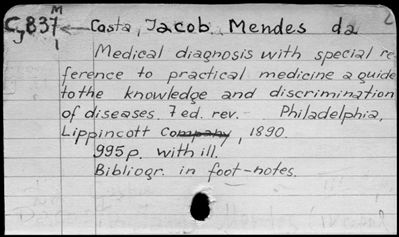 M
CJ837 ← Costa, Jacob Mendes da
1
Medical diagnosis with special re
ference to practical medicine a guide
to the knowledge and discrimination
of diseases. 7 ed. rev. - Philadelphia,
Lippincott Company, 1890.
995 p. with ill.
Bibliogr. in foot-notes.